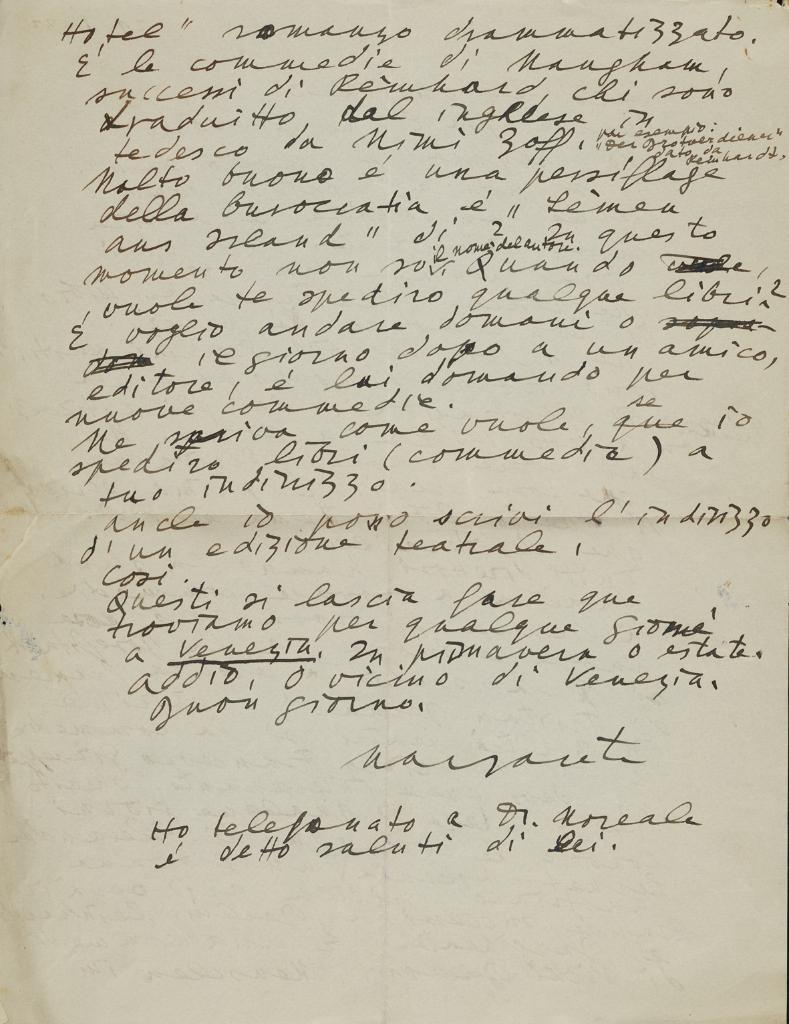 Hotel" romanzo drammatizzato.
É le commedie di Maugham,
successi di Reinhard, chi sono
traduitto, dal inglese in
tedesco da Mimi Zoff. per esempio:
"Der Brotverdiener"
dato da
Reinhardt.
Molto buono é una persiflage
della burocratia é „ Lêmen
aus Irland" di ? In questo
momento non so il nome del autore. Quando
vuole te spediro qualque libri?
E voglio andare domani o
il giorno dopo a un amico,
editore, é lui domando per
nuove commedie.
Me scriva come vuole, se que io
spediro libri (commedia) a
tuo indirizzo.
anche io posso scrivi l'indirizzo
d'un edizione teatrale,
Cosi.
Questi si lascia fare que
troviamo per qualque giorne
a Venezia. In primavera o estate.
addio, o vicino di Venezia.
Buon giorno.
Margarete
Ho telefonato a Dr. Moreale
é detto saluti di Lei.